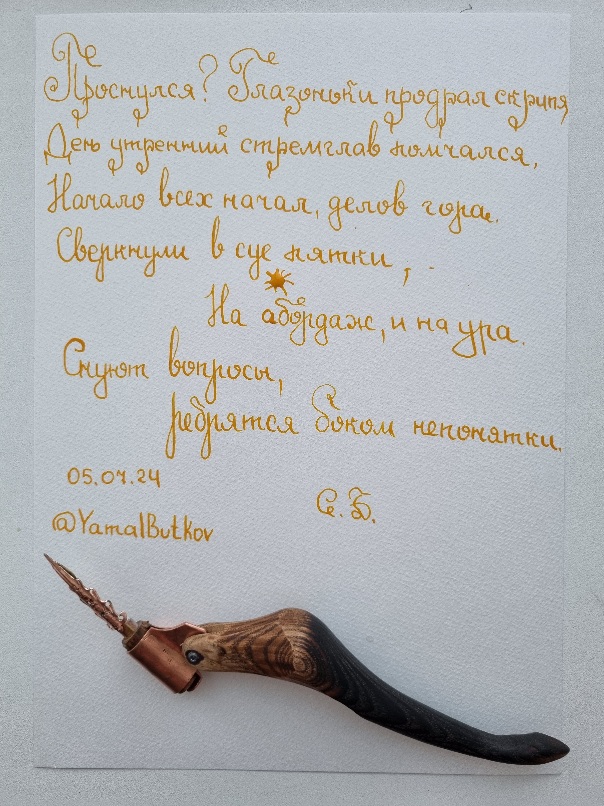 Проснулся? Глазоньки продрал скрипя,
День утренний стремглав помчался,
Начало всех начал, делов гора.
Сверкнули в суе пятки,
На абордаж, и на ура.
Снуют вопросы,
ребрятся боком непонятки.
05.07.24
С.Б.
@YamalButkov